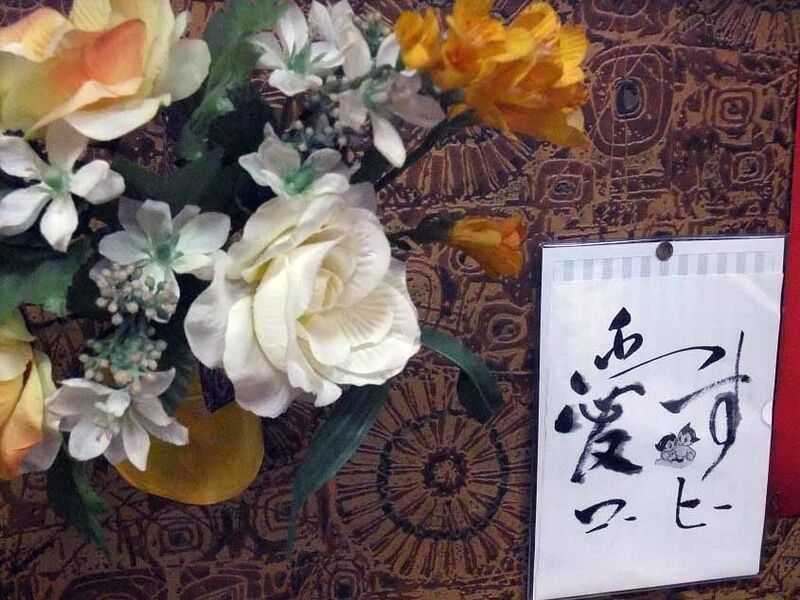 愛す
コーヒー